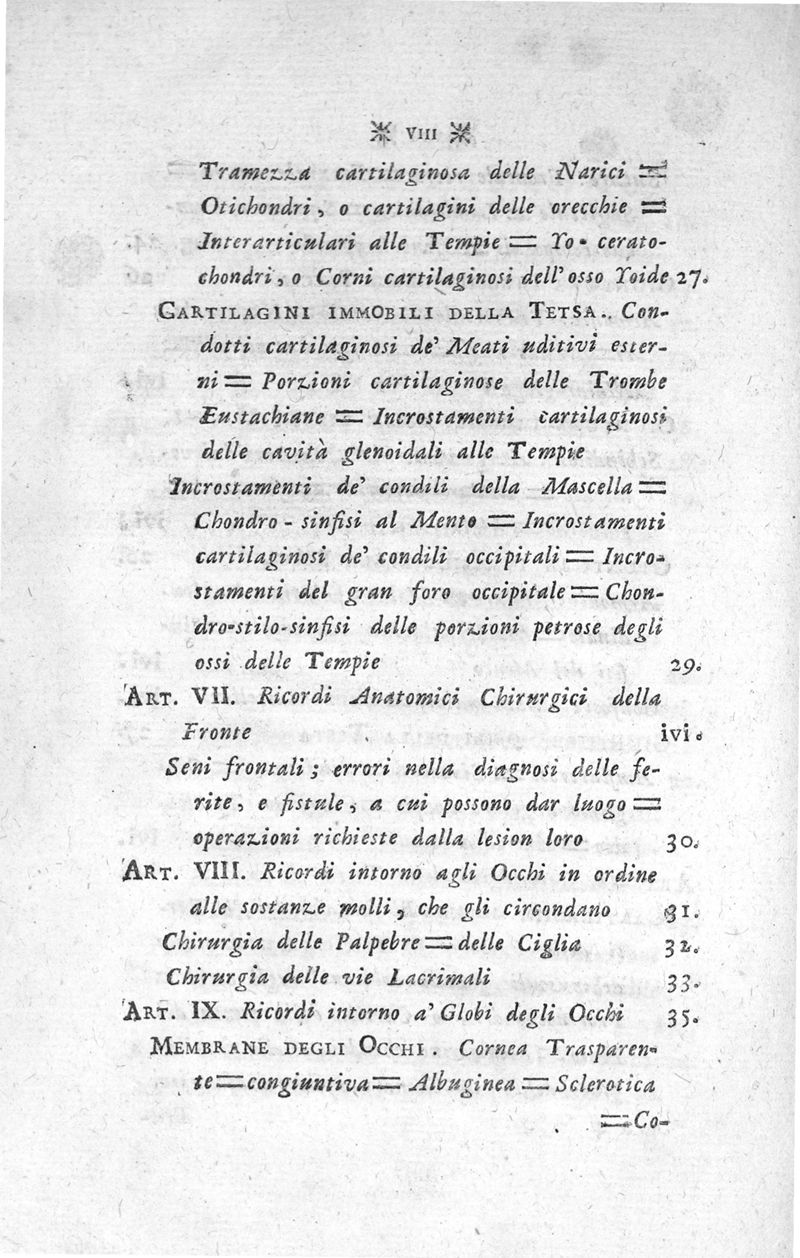 ※ VIII ※
Tramezza cartilaginosa delle Narici =
Otichondri, o cartilagini delle orecchie =
Interarticulari alle Tempie = Yo-cerato-
chondri, o Corni cartilaginosi dell' osso Yoide 27.
CARTILAGINI IMMOBILI DELLA TETSA. Con-
dotti cartilaginosi de' Meati uditivi ester-
ni = Porzioni cartilaginose delle Trombe
Eustachiane = Incrostamenti cartilaginosi
delle cavità glenoidali alle Tempie
Incrostamenti de' condili della Mascella =
Chondro-sinfisi al Mento = Incrostamenti
cartilaginosi de' condili occipitali = Incro-
stamenti del gran foro occipitale = Chon-
dro-stilo-sinfisi delle porzioni petrose degli
ossi delle Tempie 29.
ART. VII. Ricordi Anatomici Chirurgici della
Fronte ivi.
Seni frontali; errori nella diagnosi delle fe-
rite, e fistule, a cui possono dar luogo =
operazioni richieste dalla lesion loro 30.
ART. VIII. Ricordi intorno agli Occhi in ordine
alle sostanze molli, che gli circondano 31.
Chirurgia delle Palpebre = delle Ciglia 32.
Chirurgia delle vie Lacrimali 33.
ART. IX. Ricordi intorno a' Globi degli Occhi 35.
MEMBRANE DEGLI OCCHI. Cornea Trasparen-
te = congiuntiva = Albuginea = Sclerotica
= Co-